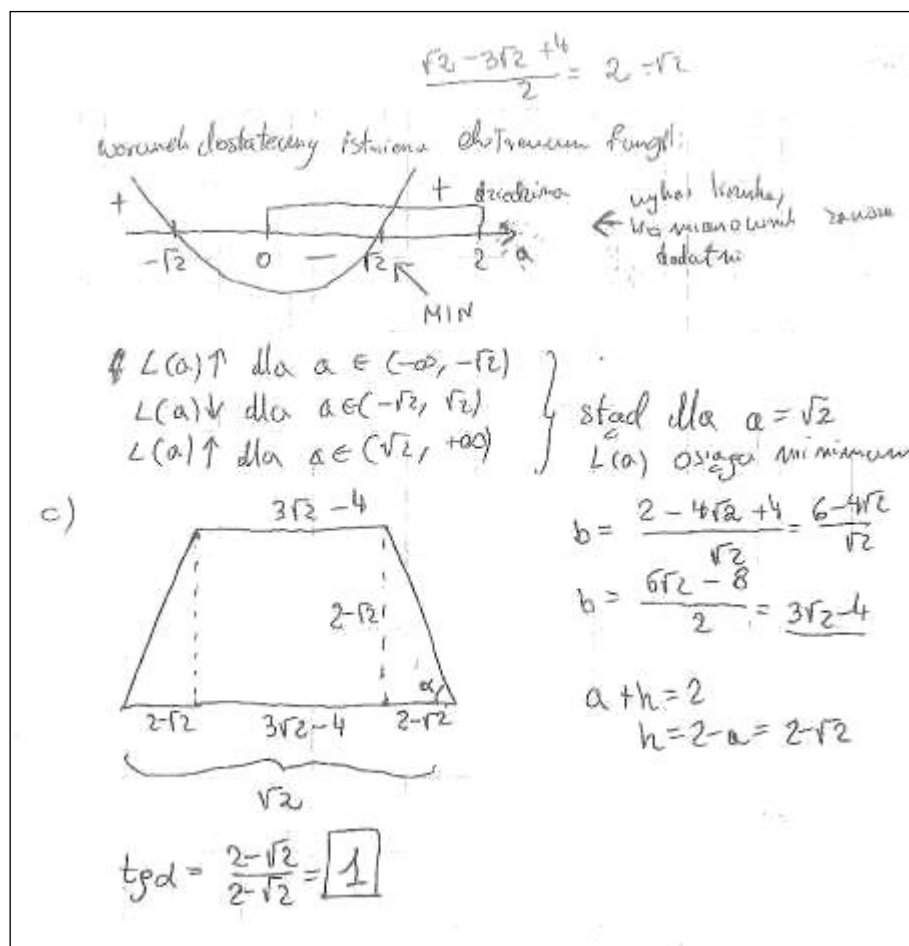 √2 - 3√2 + 4 / 2 = 2 - √2
warunek dostateczny istnienia ekstremum funkcji:
+ + dziedzina
-√2 0 — √2 2 a
← wykres
mianownik zawsze
dodatni
MIN
L(a)↑ dla a ∈ (-∞, -√2)
L(a)↓ dla a ∈ (-√2, √2)
L(a)↑ dla a ∈ (√2, +∞)
stąd dla a = √2
L(a) osiąga minimum
c)
3√2 - 4
2-√2
α
2-√2 3√2-4 2-√2
√2
b = 2 - 4√2 + 4 / √2 = 6 - 4√2 / √2
b = 6√2 - 8 / 2 = 3√2-4
a + h = 2
h = 2-a = 2-√2
tgα = 2-√2 / 2-√2 = 1